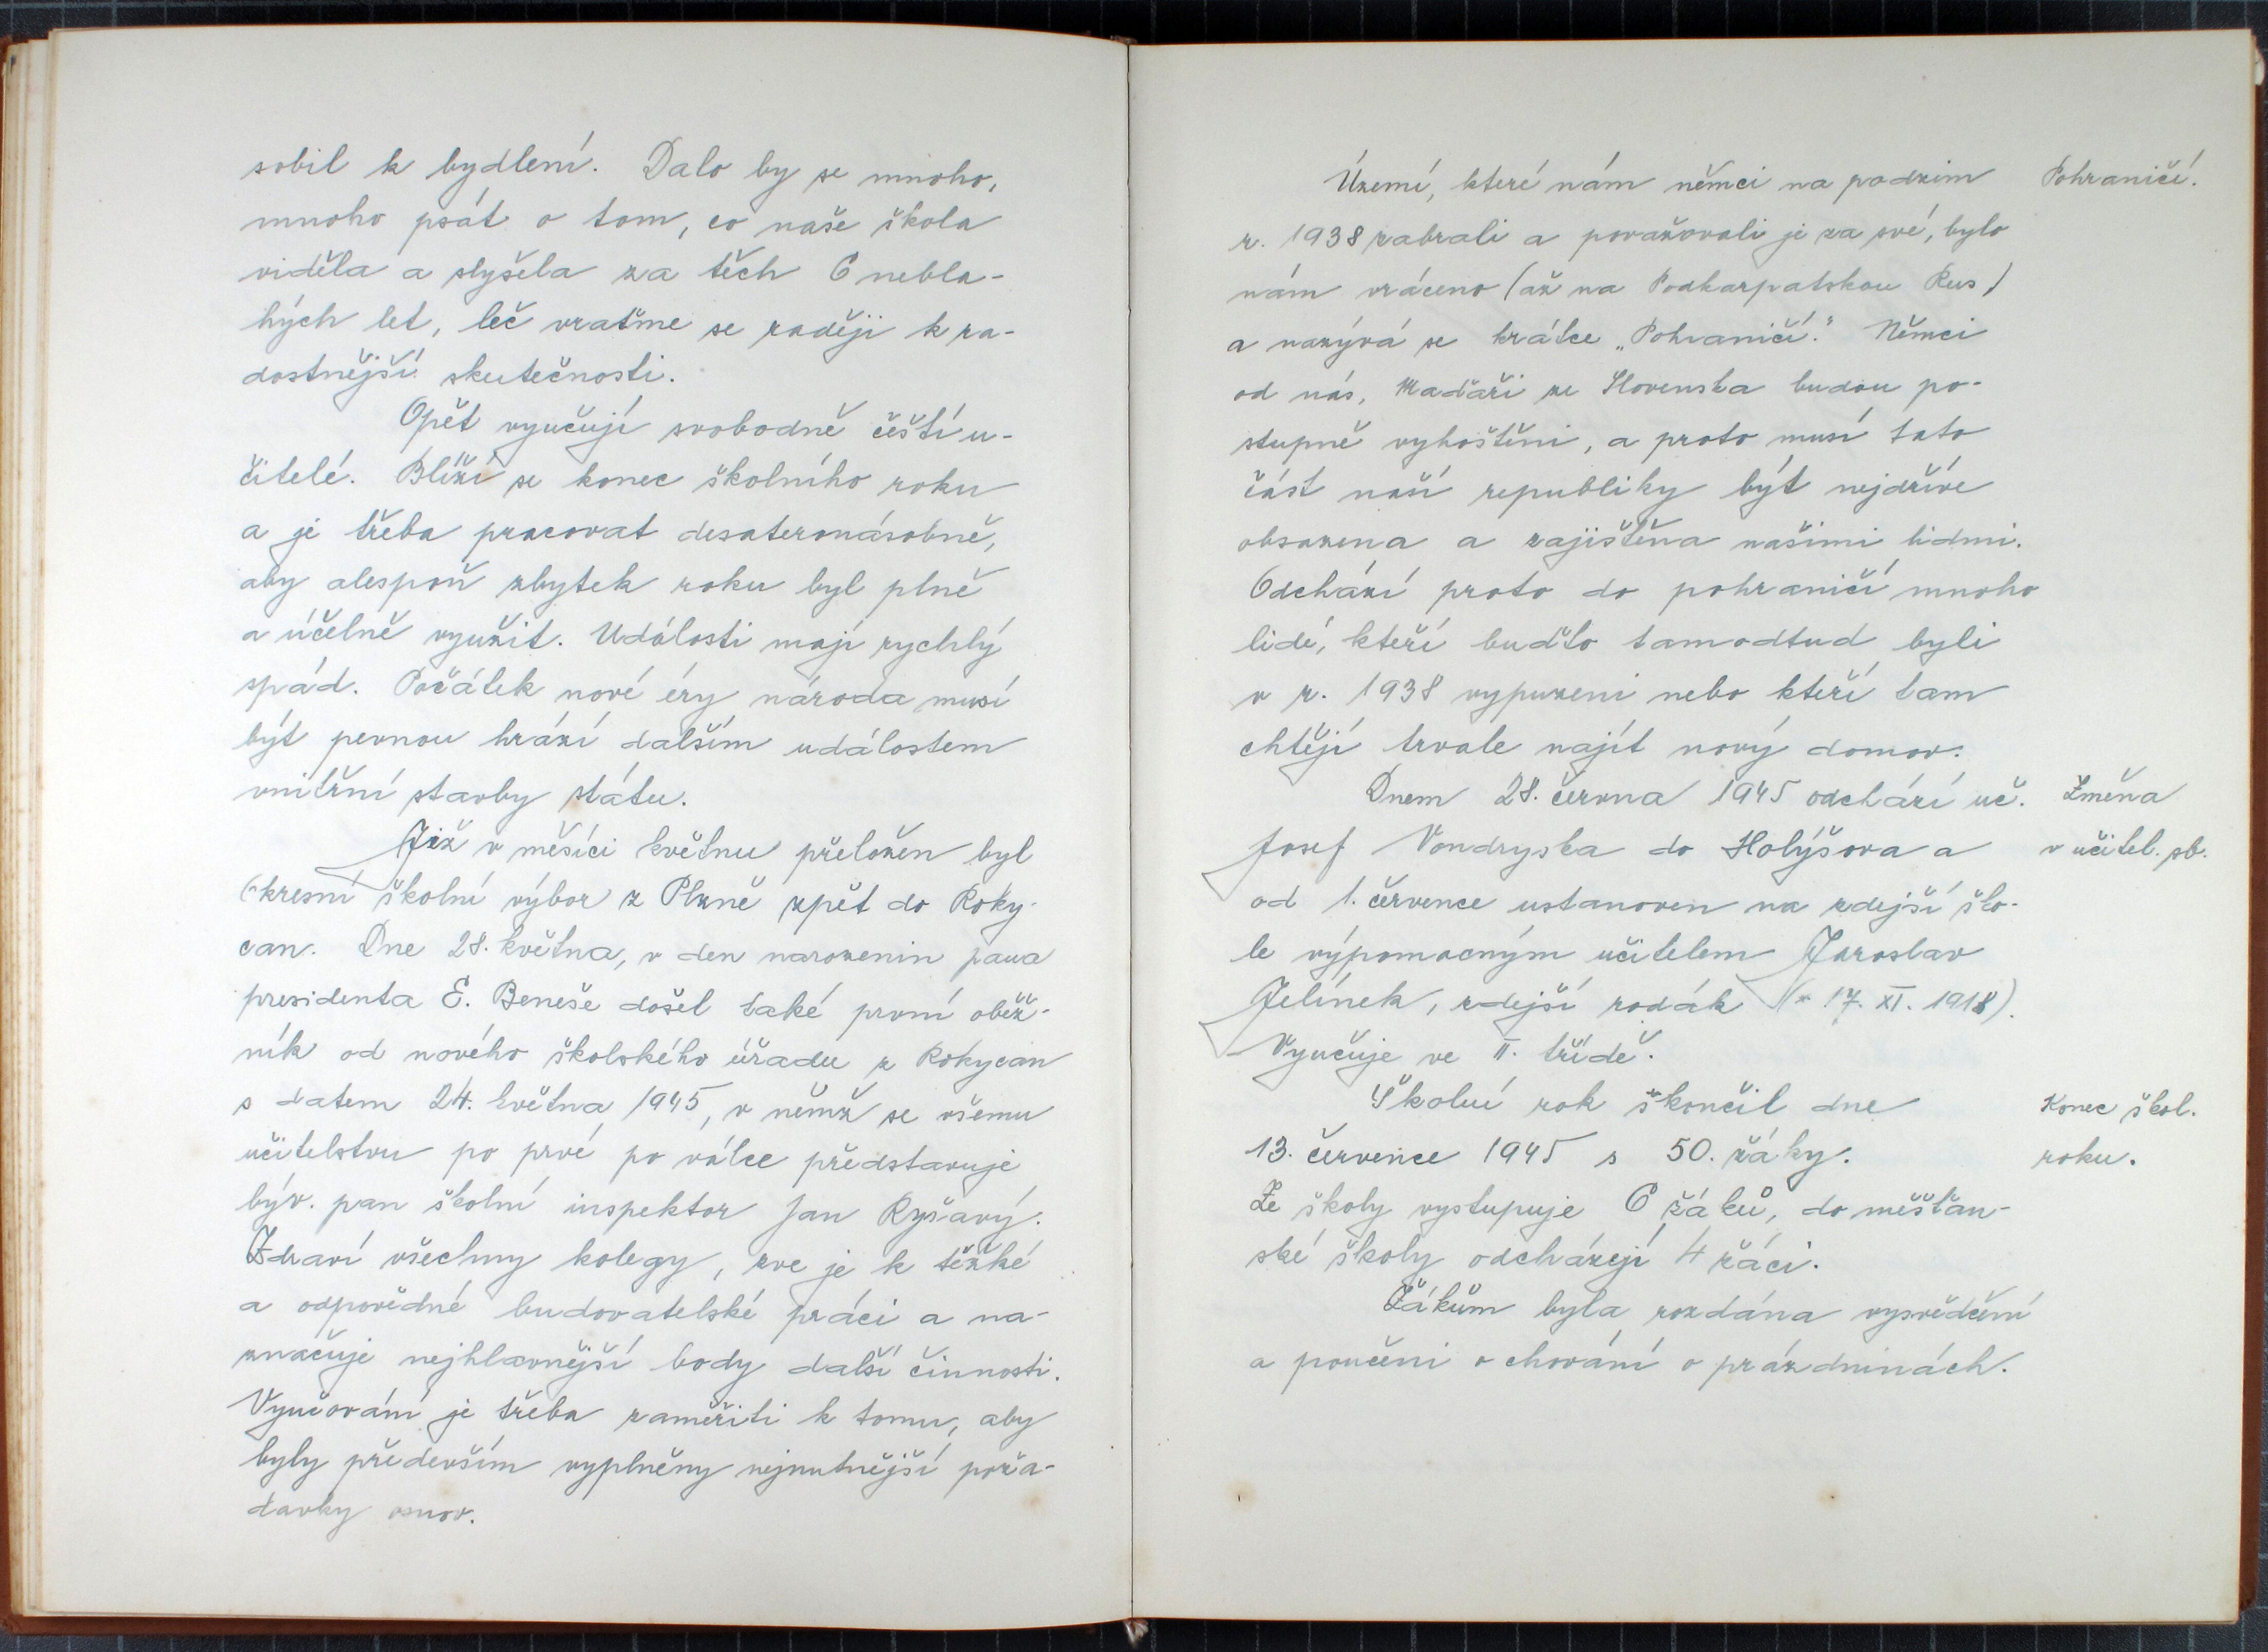 sobil k bydlení. Dalo by se mnoho,
mnoho psát o tom, co naše škola
viděla a slyšela za těch 6 nebla-
hých let, leč vraťme se raději k ra-
dostnější skutečnosti.
Opět vyučují svobodně čeští u-
čitelé. Blíží se konec školního roku
a je třeba pracovat desateronásobně,
aby alespoň zbytek roku byl plně
a účelně využit. Události mají rychlý
spád. Počátek nové éry národa musí
být pevnou hrází dalším událostem
vnitřní stavby státu.
Již v měsíci květnu přeložen byl
Okresní školní výbor z Plzně zpět do Roky-
can. Dne 28. května, v den narozenin pana
presidenta E. Beneše došel také první oběž-
ník od nového školského úřadu z Rokycan
s datem 24. května 1945, v němž se všemu
učitelstvu po prvé po válce představuje
býv. pan školní inspektor Jan Ryšavý.
Zdraví všechny kolegy, zve je k těžké
a odpovědné budovatelské práci a na-
značuje nejhlavnější body další činnosti.
Vyučování je třeba zaměřiti k tomu, aby
byly především vyplněny nejnutnější poža-
davky osnov.
Území, které nám němci na podzim
r. 1938 zabrali a považovali je za své, bylo
nám vráceno (až na Podkarpatskou Rus)
a nazývá se krátce „Pohraničí." Němci
od nás, Maďaři ze Slovenska budou po-
stupně vyhoštěni, a proto musí tato
část naší republiky být nejdříve
obsazena a zajištěna našimi lidmi.
Odchází proto do pohraničí mnoho
lidí, kteří buďto tamodtud byli
v r. 1938 vypuzeni nebo kteří tam
chtějí trvale najít nový domov.
Dnem 28. června 1945 odchází uč.
Josef Vondryska do Holýšova a
od 1. července ustanoven na zdejší ško-
le výpomocným učitelem Jaroslav
Jelínek, zdejší rodák (* 17. XI. 1918).
Vyučuje ve II. třídě.
Školní rok skončil dne
13. července 1945 s 50. žáky.
Ze školy vystupuje 6 žáků, do měšťan-
ské školy odcházejí 4 žáci.
Žákům byla rozdána vysvědčení
a poučeni o chování o prázdninách.
Pohraničí.
Změna
v učitel. sb.
Konec škol.
roku.